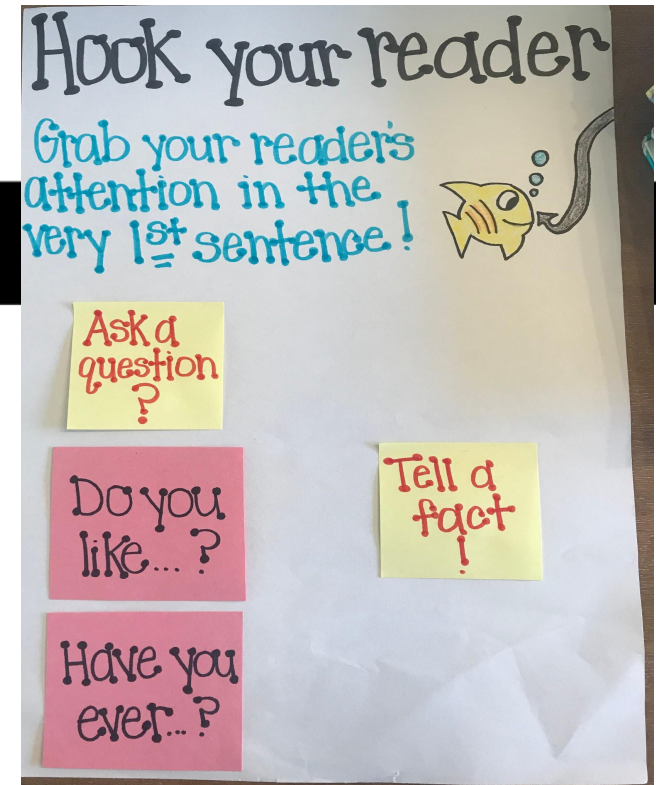 Hook your reader
Grab your reader's
attention in the
very 1st sentence!
Ask a
question
?
Do you
like... ?
Have you
ever...?
Tell a
fact
!